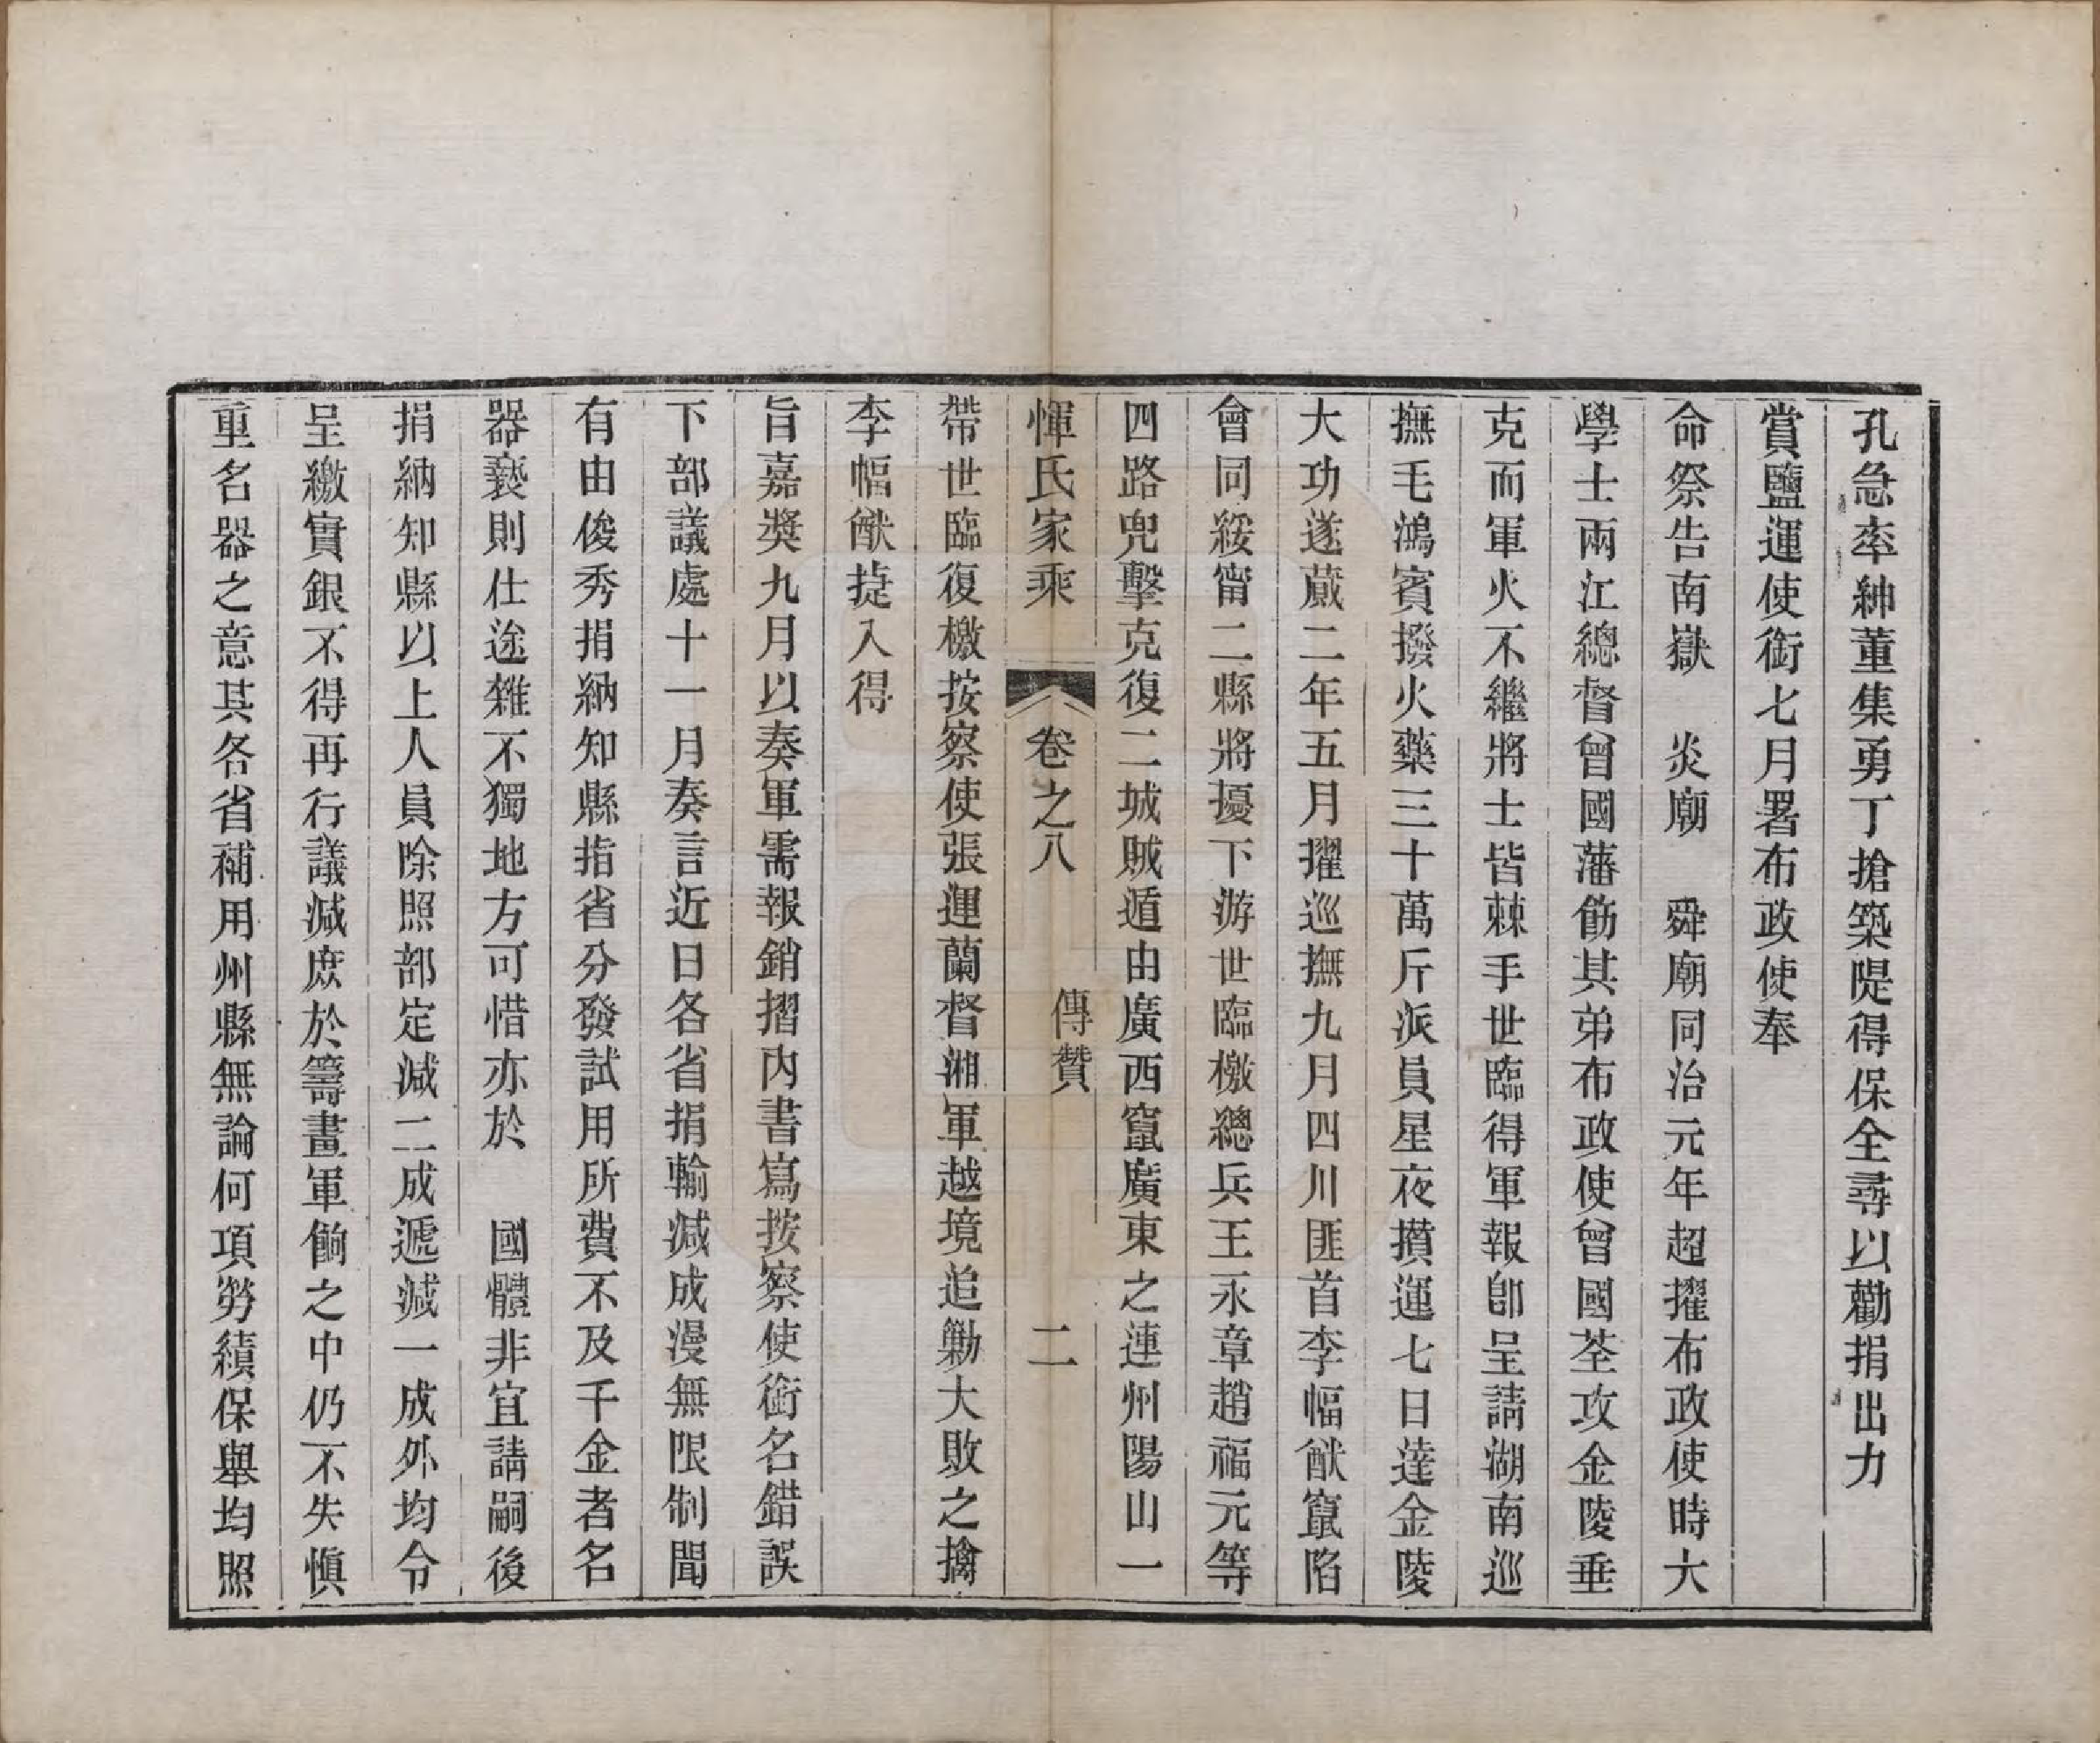 孔急率紳董集勇丁搶築隄得保全尋以勸捐出力
賞鹽運使銜七月署布政使奉
命祭告南嶽　炎廟　舜廟同治元年超擢布政使時大
學士兩江總督曾國藩飭其弟布政使曾國荃攻金陵垂
克而軍火不繼將士皆棘手世臨得軍報卽呈請湖南巡
撫毛鴻賓撥火藥三十萬斤派員星夜攢運七日達金陵
大功遂蕆二年五月擢巡撫九月四川匪首李幅猷竄陷
會同綏甯二縣將擾下游世臨檄總兵王永章趙福元等
四路兜擊克復二城賊遁由廣西竄廣東之連州陽山一
惲氏家乘　卷之八　傳贊　二
帶世臨復檄按察使張運蘭督湘軍越境追勦大敗之擒
李幅猷㨗入得
旨嘉獎九月以奏軍需報銷摺內書寫按察使銜名錯誤
下部議處十一月奏言近日各省捐輸減成漫無限制聞
有由俊秀捐納知縣指省分發試用所費不及千金者名
器褻則仕途雜不獨地方可惜亦於　國體非宜請嗣後
捐納知縣以上人員除照部定減二成遞減一成外均令
呈繳實銀不得再行議減庶於籌畫軍餉之中仍不失愼
重名器之意其各省補用州縣無論何項勞績保舉均照